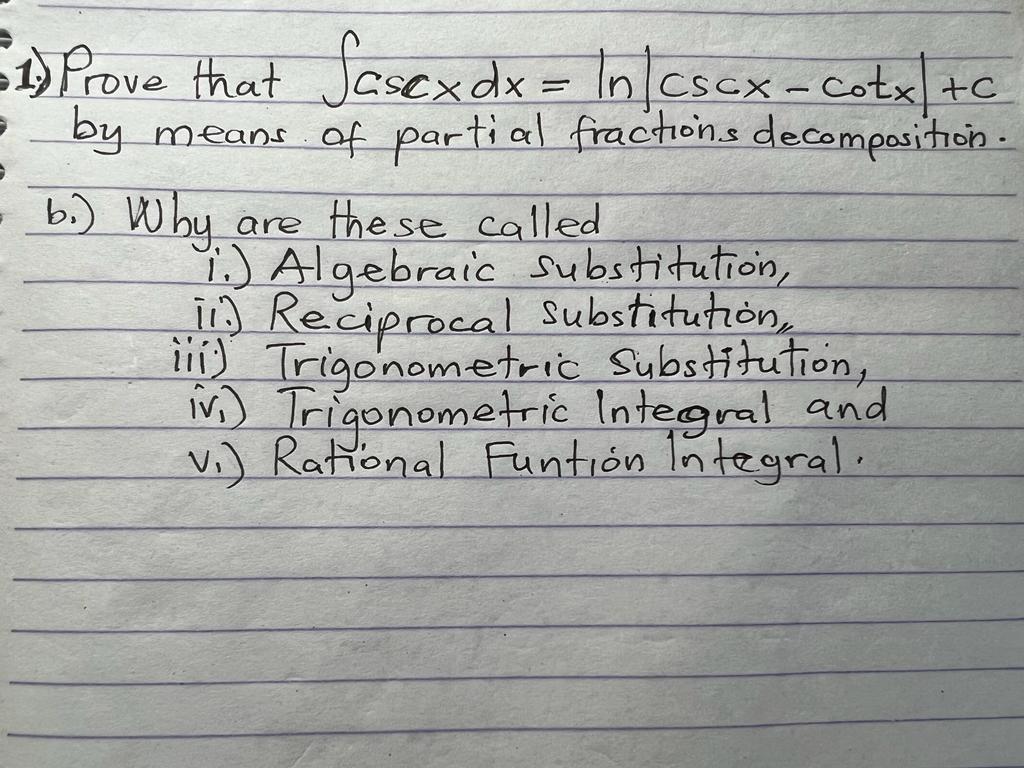 1.) Prove that ∫cscx dx = ln|cscx - cotx| + c
by means of partial fractions decomposition.
b.) Why are these called
i.) Algebraic substitution,
ii.) Reciprocal substitution,,
iii) Trigonometric Substitution,
iv.) Trigonometric Integral and
v.) Rational Funtion Integral.